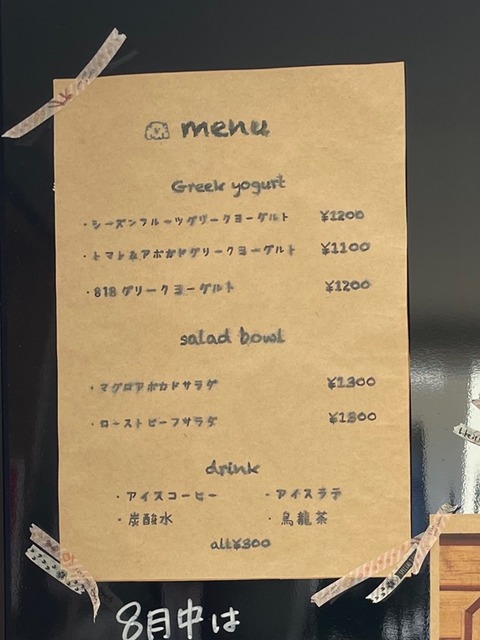 menu
Greek yogurt
・シーズンフルーツグリークヨーグルト ¥1200
・トマト&アボカドグリークヨーグルト ¥1100
・818グリークヨーグルト ¥1200
salad bowl
・マグロアボカドサラダ ¥1300
・ローストビーフサラダ ¥1300
drink
・アイスコーヒー ・アイスラテ
・炭酸水 ・烏龍茶
all¥300
8月中は